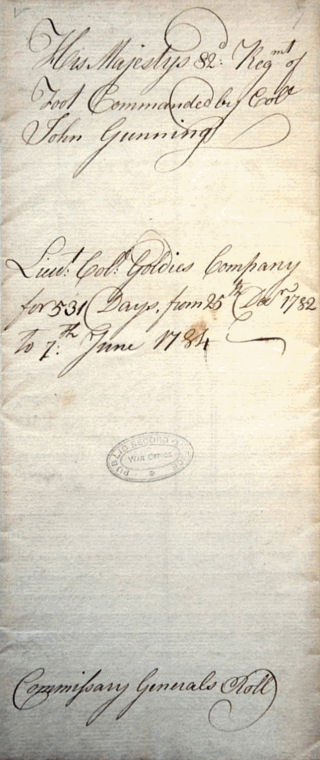 His Majestys 82d. Regmt of
Foot Commanded by Coll
John Gunning
Lieut. Coll. Goldies Company
for 531 Days, from 25th Decr. 1782
to 7th. June 1784
PUBLIC RECORD OFFICE
WAR OFFICE
Commissary Generals Roll